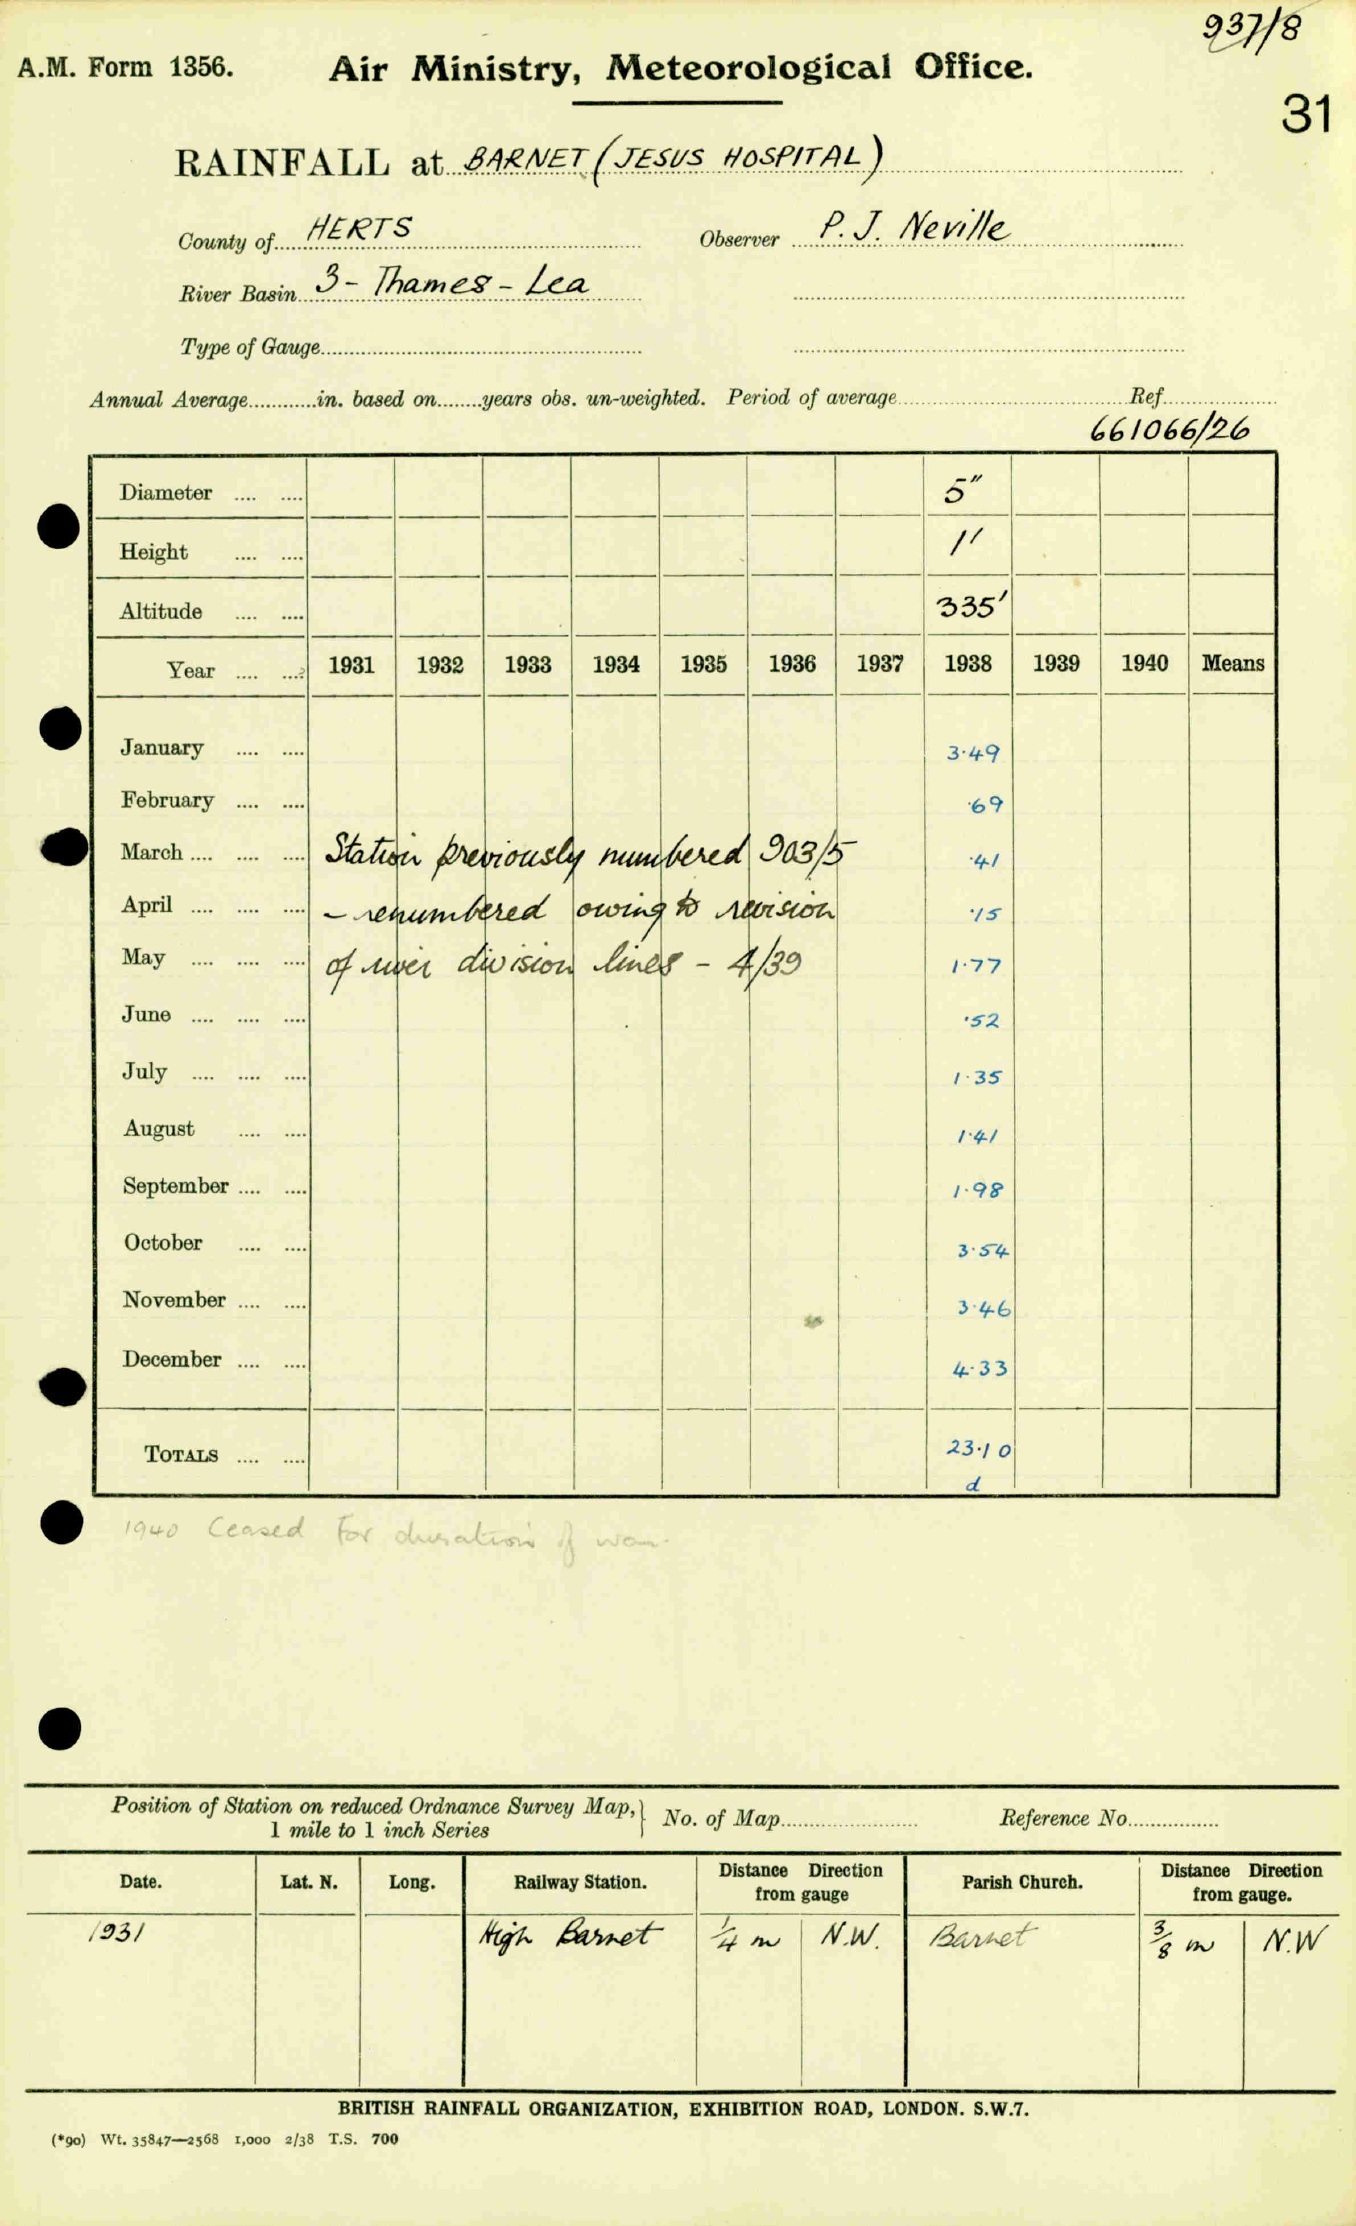 937/8
A.M. Form 1356. Air Ministry, Meteorological Office.
31
RAINFALL at BARNET (JESUS HOSPITAL)
County of HERTS Observer P. J. Neville
River Basin 3 - Thames - Lea
Type of Gauge
Annual Average in. based on years obs. un-weighted. Period of average Ref.
661066/26
Diameter 5"
Height 1'
Altitude 335'
Year 1931 1932 1933 1934 1935 1936 1937 1938 1939 1940 Means
January 3.49
February .69
March Station previously numbered 903/5 .41
April - renumbered owing to revision .15
May of river division lines - 4/39 1.77
June .52
July 1.35
August 1.41
September 1.98
October 3.54
November 3.46
December 4.33
TOTALS 23.10
d
1940 Ceased For duration of war.
Position of Station on reduced Ordnance Survey Map, } No. of Map Reference No.
1 mile to 1 inch Series
Date. Lat. N. Long. Railway Station. Distance Direction from gauge Parish Church. Distance Direction from gauge.
1931 High Barnet 1/4 m N.W. Barnet 3/8 m N.W
BRITISH RAINFALL ORGANIZATION, EXHIBITION ROAD, LONDON. S.W.7.
(*90) Wt. 35847—2568 1,000 2/38 T.S. 700